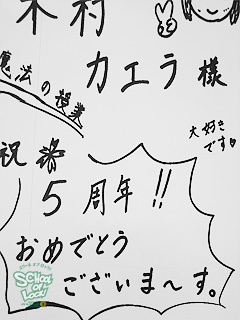 木村
カエラ様
魔法の授業
大好き
です♡
祝
5周年!!
おめでとう
ございま〜す。
SCHOOL
OF
LOCK!